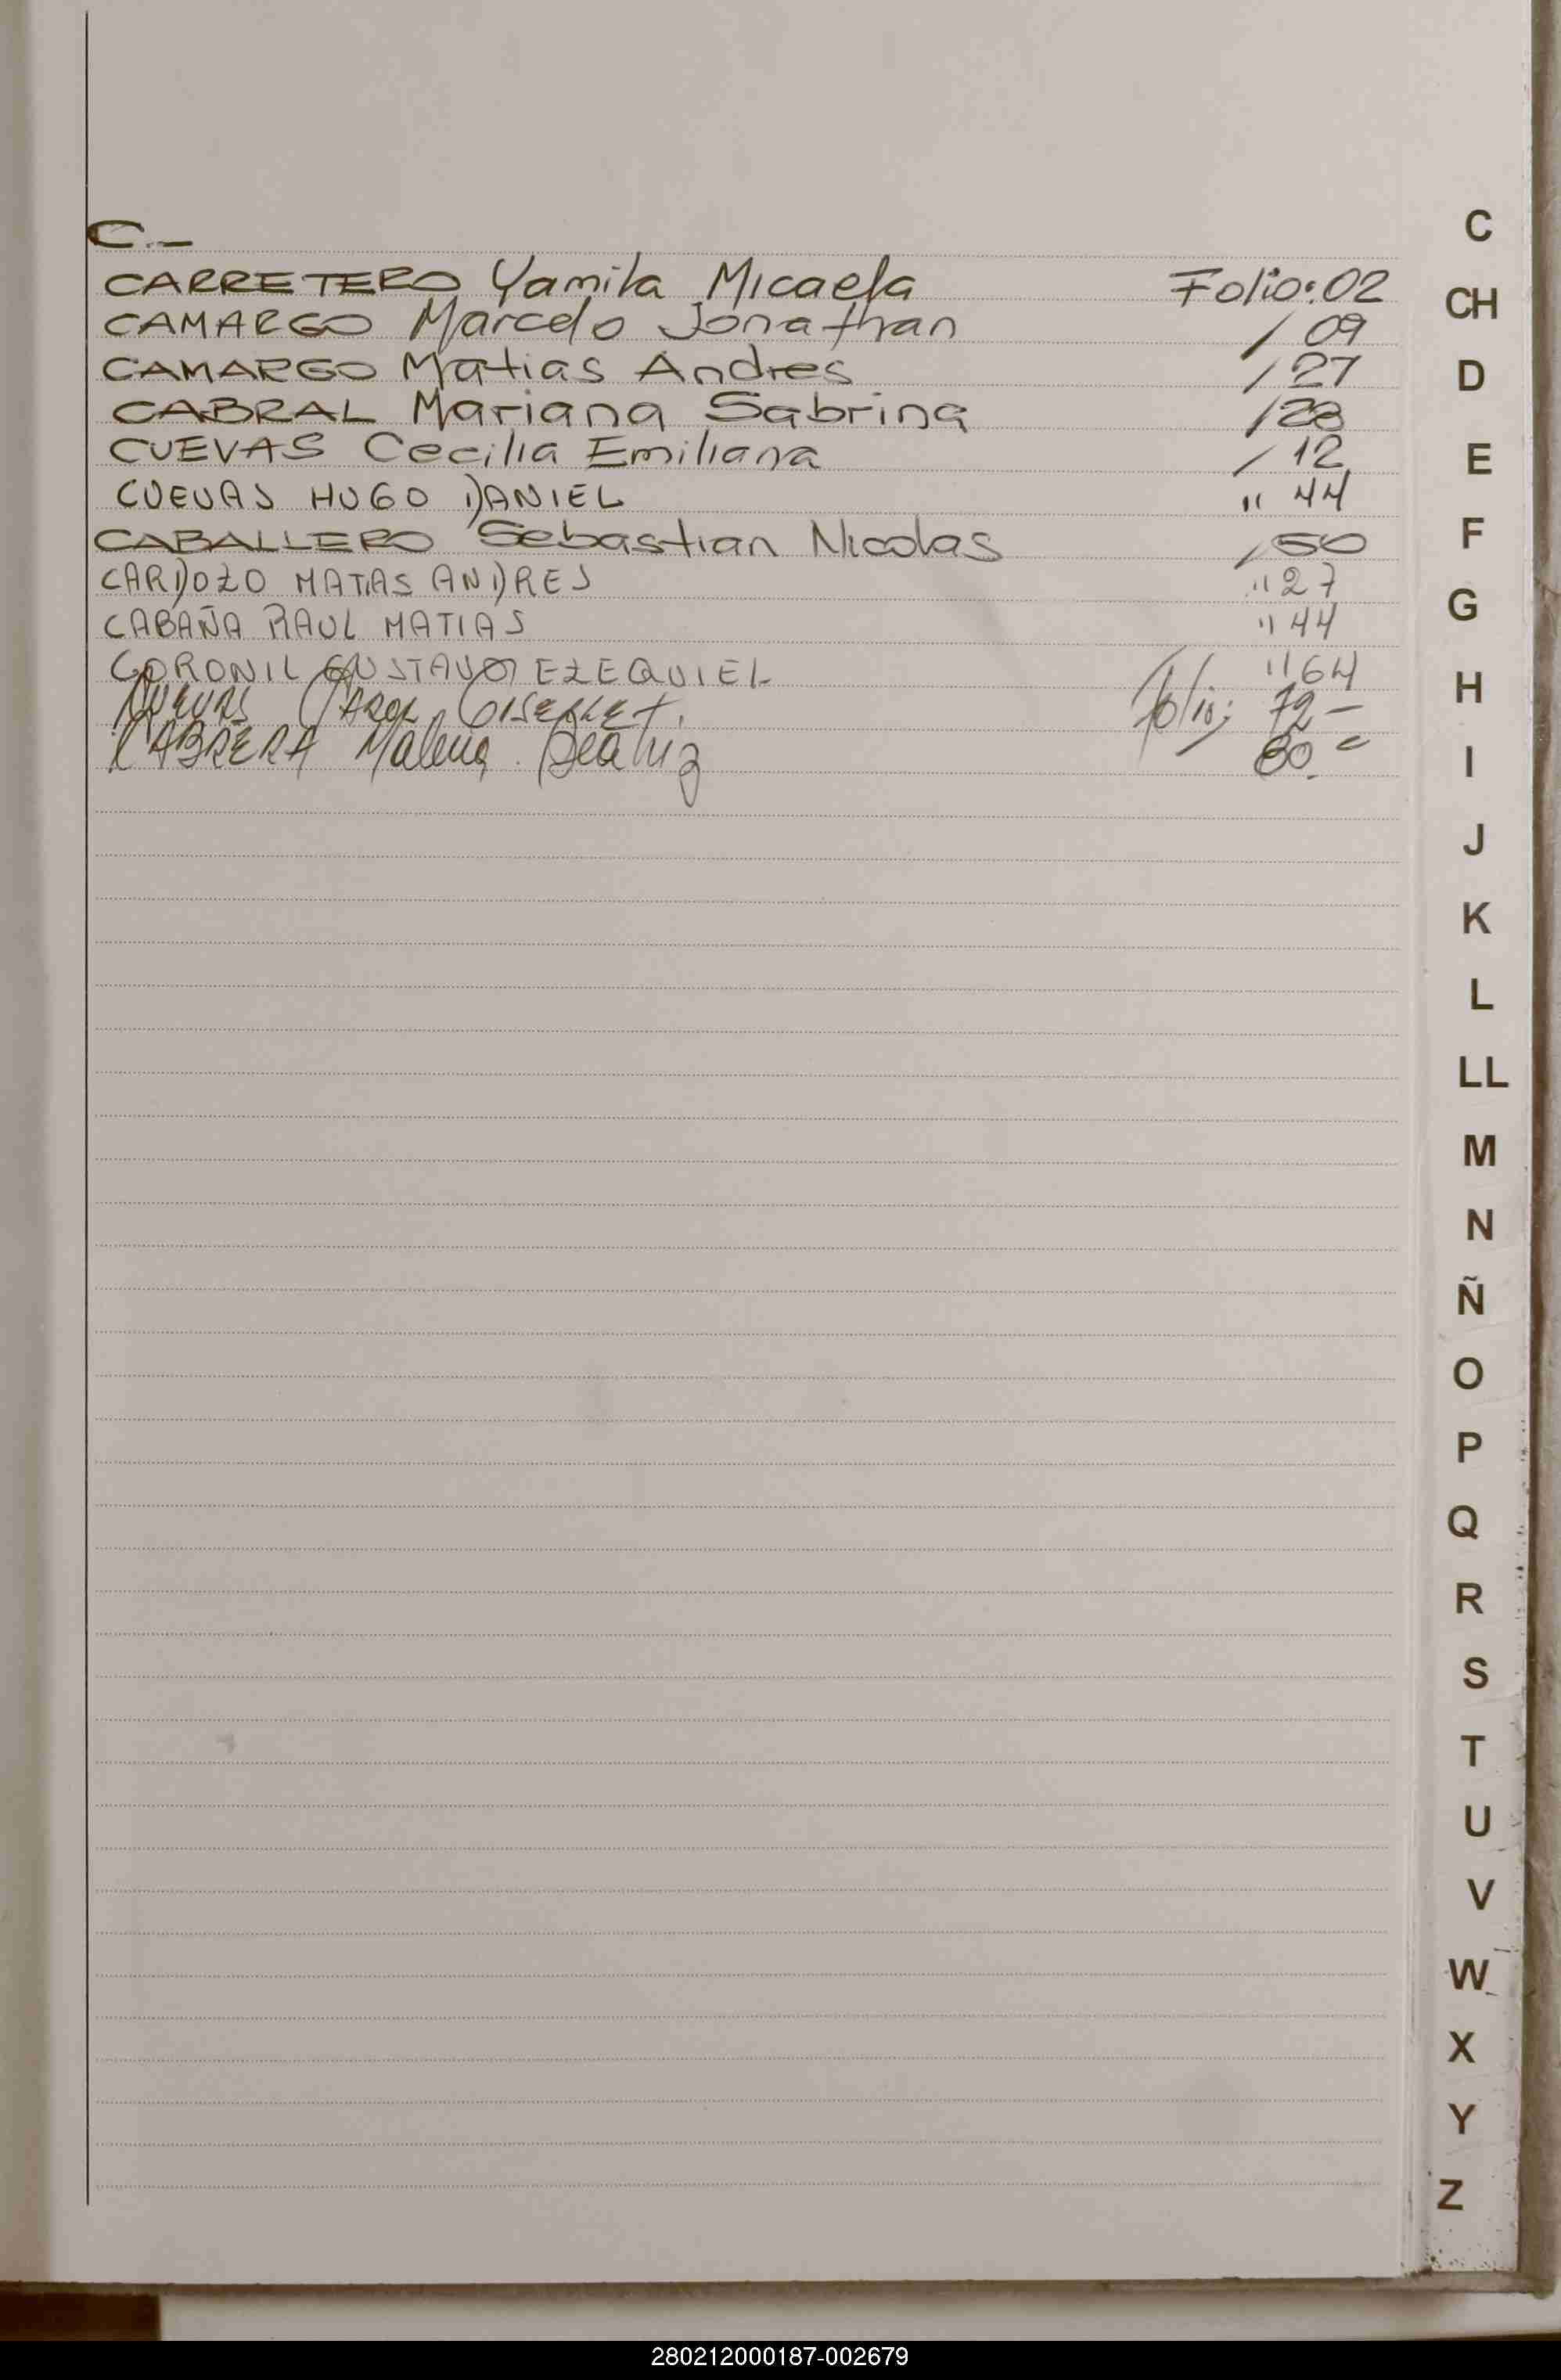 C.-
CARRETERO Yamila Micaela Folio: 02
CAMARGO Marcelo Jonathan / 09
CAMARGO Matias Andres / 27
CABRAL Mariana Sabrina / 28
CUEVAS Cecilia Emiliana / 12
CUEVAS HUGO DANIEL " 44
CABALLERO Sebastian Nicolas / 50
CARDOZO MATIAS ANDRES " 27
CABAÑA RAUL MATIAS " 44
CORONIL GUSTAVO EZEQUIEL " 64
CUEVAS CAROL folio; 72-
CABRERA Malena Beatriz 80.-
C
CH
D
E
F
G
H
I
J
K
L
LL
M
N
Ñ
O
P
Q
R
S
T
U
V
W
X
Y
Z
280212000187-002679